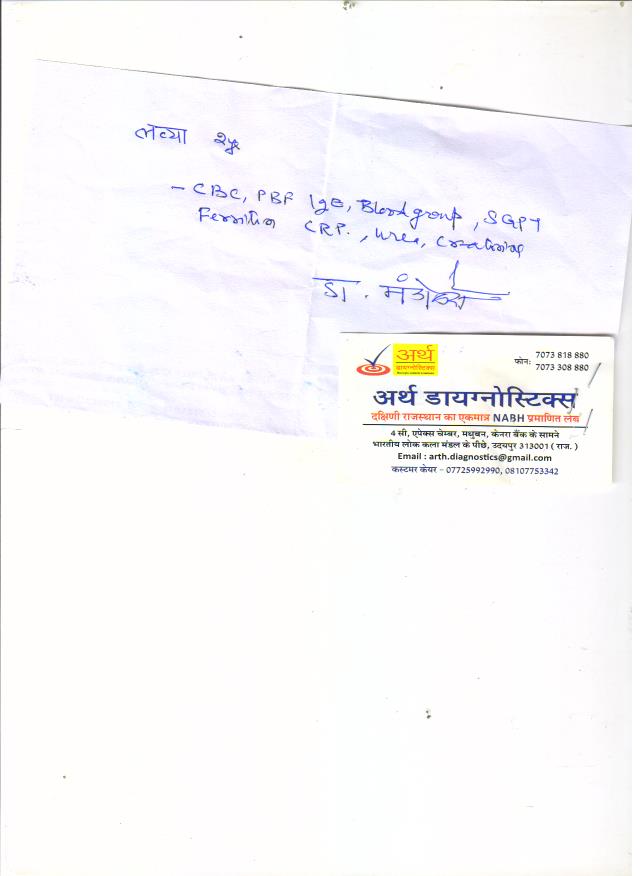 लव्या
- CBC, PBF IgE, Blood group, SGPT
Ferritin CRP., Urea, Creatinine
डा.
अर्थ
डायग्नोस्टिक्स
फोन: 7073 818 880
7073 308 880
अर्थ डायग्नोस्टिक्स
दक्षिणी राजस्थान का एकमात्र NABH प्रमाणित लैब
4 सी, एपेक्स चेम्बर, मधुबन, केनरा बैंक के सामने
भारतीय लोक कला मंडल के पीछे, उदयपुर 313001 ( राज. )
Email : arth.diagnostics@gmail.com
कस्टमर केयर – 07725992990, 08107753342